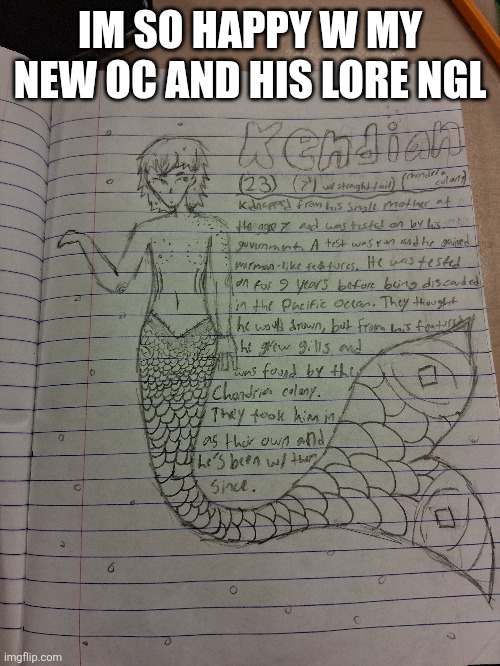 IM SO HAPPY W MY
NEW OC AND HIS LORE NGL
Kendian
(23) (7'1 w/ straight tail) (Chondria colony)
Kidnapped from his single mother at
the age 7 and was tested on by his
government. A test was run and he gained
merman-like features. He was tested
on for 9 years before being discarded
in the Pacific Ocean. They thought
he would drown, but from his features
he grew gills and
was found by the
Chondria colony.
They took him in
as their own and
he's been w/ them
since.
imgflip.com